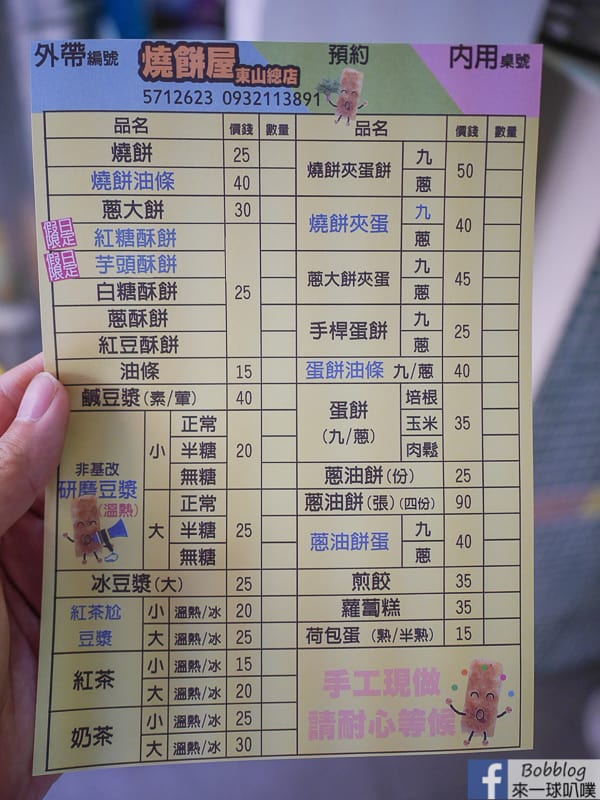 外帶編號 燒餅屋東山總店 預約 內用桌號
5712623 0932113891
品名 價錢 數量
燒餅 25
燒餅油條 40
蔥大餅 30
假日限定 紅糖酥餅
假日限定 芋頭酥餅
白糖酥餅 25
蔥酥餅
紅豆酥餅
油條 15
鹹豆漿(素/葷) 40
非基改
研磨豆漿
(溫熱)
小 正常
半糖 20
無糖
大 正常
半糖 25
無糖
冰豆漿(大) 25
紅茶尬
豆漿
小 溫熱/冰 20
大 溫熱/冰 25
紅茶
小 溫熱/冰 15
大 溫熱/冰 20
奶茶
小 溫熱/冰 25
大 溫熱/冰 30
品名 價錢 數量
燒餅夾蛋餅 九 蔥 50
燒餅夾蛋 九 蔥 40
蔥大餅夾蛋 九 蔥 45
手桿蛋餅 九 蔥 25
蛋餅油條 九/蔥 40
蛋餅
(九/蔥)
培根
玉米 35
肉鬆
蔥油餅(份) 25
蔥油餅(張)(四份) 90
蔥油餅蛋 九 蔥 40
煎餃 35
蘿蔔糕 35
荷包蛋 (熟/半熟) 15
手工現做
請耐心等候
Bobblog
來一球叭噗